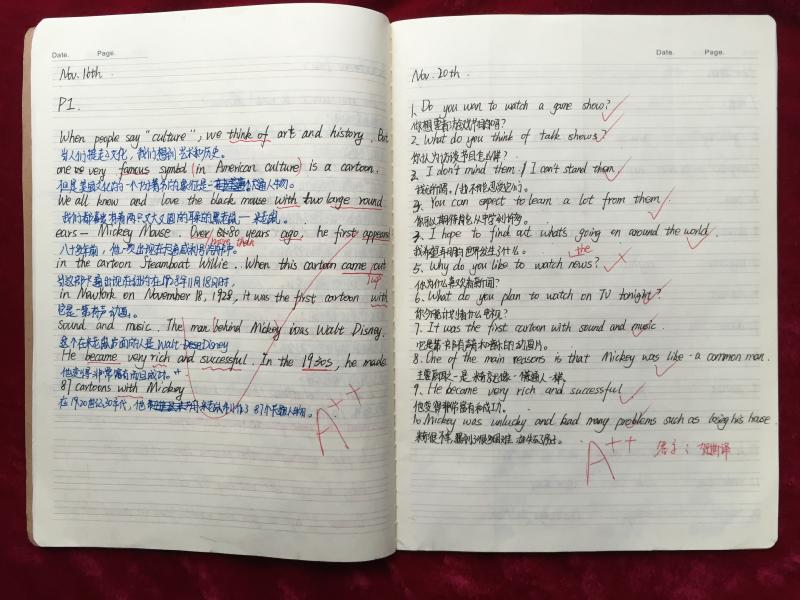 Date. Page.
Nov. 16th.
P1.
When people say "culture", we think of art and history. But
当人们提起文化，我们想到艺术和历史。
one very famous symbol in American culture is a cartoon.
We all know and love the black mouse with two large round
ears - Mickey Mouse. Over 80 years ago, he first appeared
more than
in the cartoon Steamboat Willie. When this cartoon came out
up
in NewYork on November 18, 1928, it was the first cartoon with
它是第一有声动画。
sound and music. The man behind Mickey was Walt Disney.
这个在米老鼠后面的人是 Walt Disney
He became very rich and successful. In the 1930s, he made
他变得非常富有而且成功。
87 cartoons with Mickey
A++
Date. Page.
Nov. 20th.
1. Do you wan to watch a game show?
你想要看游戏节目吗？
2. What do you think of talk shows?
你认为访谈节目怎么样？
3. I don't mind them / I can't stand them
我不介意。/我不能忍受它们。
3. You can expect to learn a lot from them
3. I hope to find out what's going on around the world.
我希望弄明白世界发生了什么。
the
5. Why do you like to watch news?
你为什么喜欢看新闻？
6. What do you plan to watch on TV tonight?
7. It was the first cartoon with sound and music.
8. One of the main reasons is that Mickey was like a common man.
9. He became very rich and successful
他变得非常富有和成功。
10. Mickey was unlucky and had many problems such as losing his house
A++